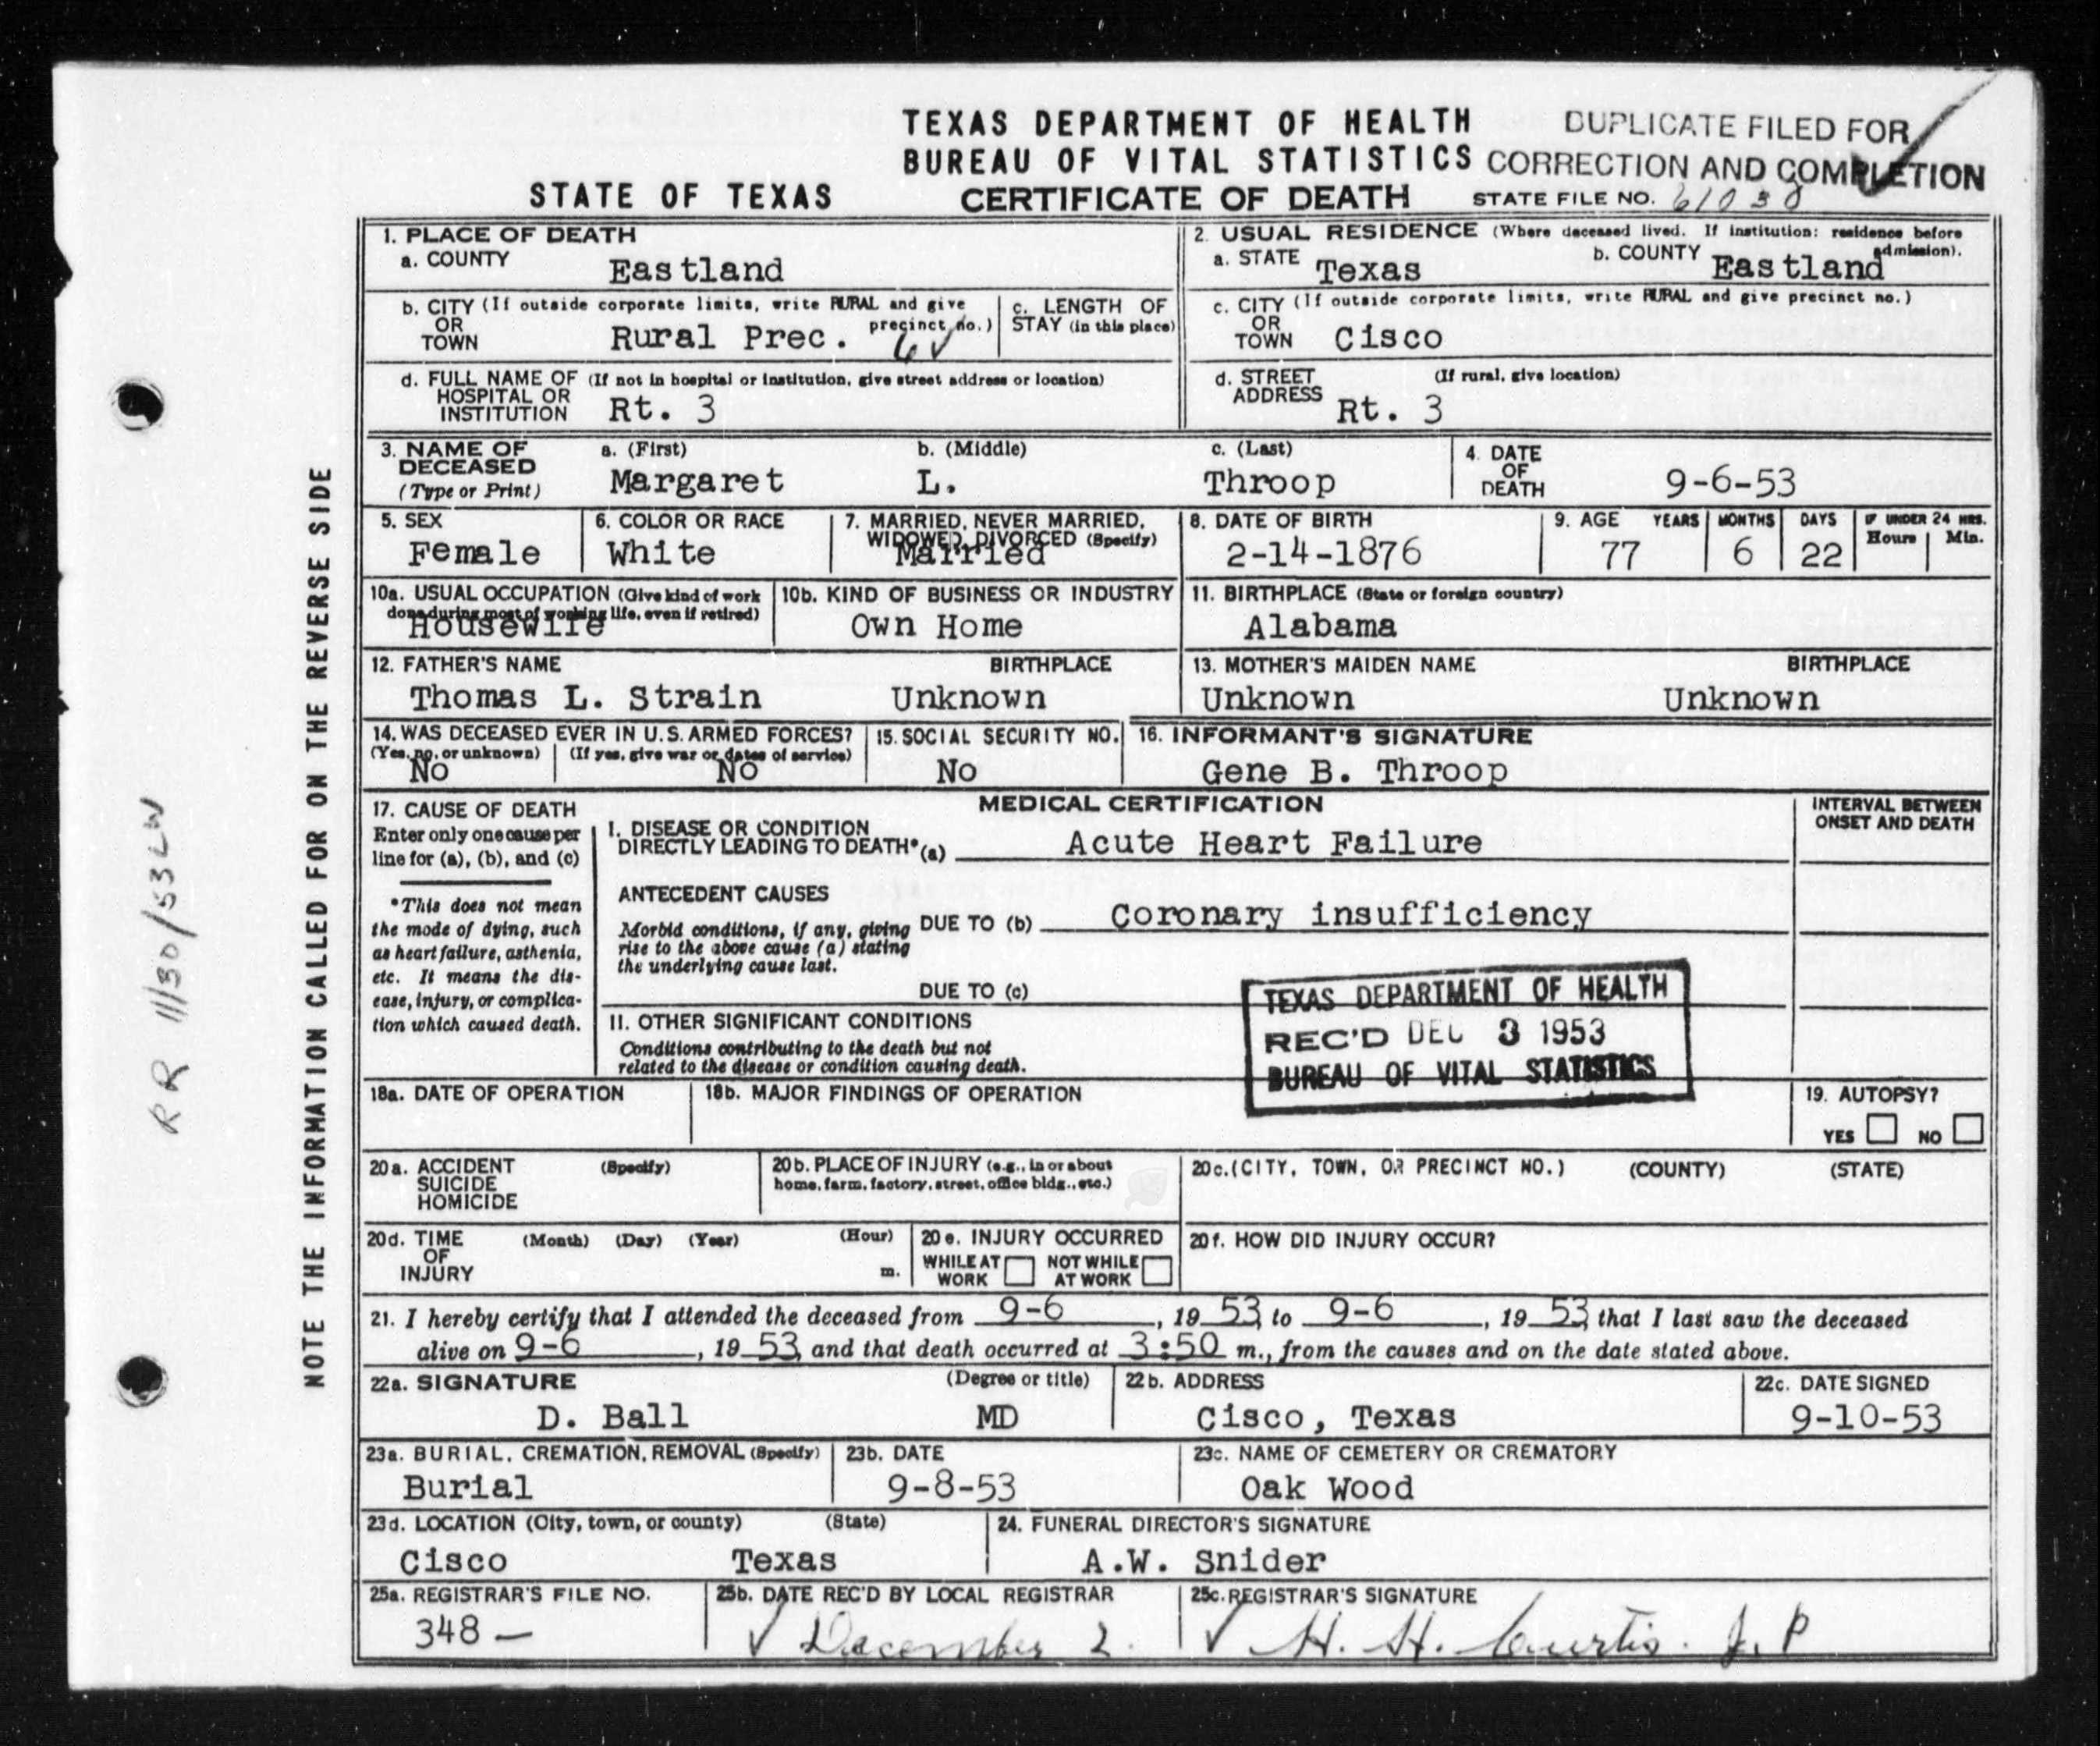 TEXAS DEPARTMENT OF HEALTH
BUREAU OF VITAL STATISTICS
DUPLICATE FILED FOR
CORRECTION AND COMPLETION
STATE OF TEXAS
CERTIFICATE OF DEATH
STATE FILE NO. 61038
NOTE THE INFORMATION CALLED FOR ON THE REVERSE SIDE
RR 11/30/53 LW
1. PLACE OF DEATH
a. COUNTY
Eastland
2. USUAL RESIDENCE (Where deceased lived. If institution: residence before admission).
a. STATE Texas
b. COUNTY Eastland
b. CITY (If outside corporate limits, write RURAL and give precinct no.)
OR
TOWN
Rural Prec. 6
c. LENGTH OF
STAY (in this place)
c. CITY (If outside corporate limits, write RURAL and give precinct no.)
OR
TOWN Cisco
d. FULL NAME OF (If not in hospital or institution, give street address or location)
HOSPITAL OR
INSTITUTION Rt. 3
d. STREET (If rural, give location)
ADDRESS Rt. 3
3. NAME OF
DECEASED
(Type or Print)
a. (First)
Margaret
b. (Middle)
L.
c. (Last)
Throop
4. DATE
OF
DEATH
9-6-53
5. SEX
Female
6. COLOR OR RACE
White
7. MARRIED, NEVER MARRIED,
WIDOWED, DIVORCED (Specify)
Married
8. DATE OF BIRTH
2-14-1876
9. AGE YEARS MONTHS DAYS IF UNDER 24 HRS.
Hours Min.
77 6 22
10a. USUAL OCCUPATION (Give kind of work
done during most of working life, even if retired)
Housewife
10b. KIND OF BUSINESS OR INDUSTRY
Own Home
11. BIRTHPLACE (State or foreign country)
Alabama
12. FATHER'S NAME BIRTHPLACE
Thomas L. Strain Unknown
13. MOTHER'S MAIDEN NAME BIRTHPLACE
Unknown Unknown
14. WAS DECEASED EVER IN U.S. ARMED FORCES?
(Yes, no, or unknown) (If yes, give war or dates of service)
No No
15. SOCIAL SECURITY NO.
No
16. INFORMANT'S SIGNATURE
Gene B. Throop
17. CAUSE OF DEATH
Enter only one cause per
line for (a), (b), and (c)
*This does not mean
the mode of dying, such
as heart failure, asthenia,
etc. It means the dis-
ease, injury, or complica-
tion which caused death.
MEDICAL CERTIFICATION
INTERVAL BETWEEN
ONSET AND DEATH
I. DISEASE OR CONDITION
DIRECTLY LEADING TO DEATH* (a) Acute Heart Failure
ANTECEDENT CAUSES
Morbid conditions, if any, giving
rise to the above cause (a) stating
the underlying cause last.
DUE TO (b) Coronary insufficiency
DUE TO (c)
TEXAS DEPARTMENT OF HEALTH
REC'D DEC 3 1953
BUREAU OF VITAL STATISTICS
II. OTHER SIGNIFICANT CONDITIONS
Conditions contributing to the death but not
related to the disease or condition causing death.
18a. DATE OF OPERATION
18b. MAJOR FINDINGS OF OPERATION
19. AUTOPSY?
YES NO
20a. ACCIDENT (Specify)
SUICIDE
HOMICIDE
20b. PLACE OF INJURY (e.g., in or about
home, farm, factory, street, office bldg., etc.)
20c. (CITY, TOWN, OR PRECINCT NO.) (COUNTY) (STATE)
20d. TIME (Month) (Day) (Year) (Hour)
OF
INJURY m.
20e. INJURY OCCURRED
WHILE AT
WORK
NOT WHILE
AT WORK
20f. HOW DID INJURY OCCUR?
21. I hereby certify that I attended the deceased from 9-6, 19 53 to 9-6, 19 53 that I last saw the deceased
alive on 9-6, 19 53, and that death occurred at 3:50 m., from the causes and on the date stated above.
22a. SIGNATURE (Degree or title)
D. Ball MD
22b. ADDRESS
Cisco, Texas
22c. DATE SIGNED
9-10-53
23a. BURIAL, CREMATION, REMOVAL (Specify)
Burial
23b. DATE
9-8-53
23c. NAME OF CEMETERY OR CREMATORY
Oak Wood
23d. LOCATION (City, town, or county) (State)
Cisco Texas
24. FUNERAL DIRECTOR'S SIGNATURE
A.W. Snider
25a. REGISTRAR'S FILE NO.
348 —
25b. DATE REC'D BY LOCAL REGISTRAR
December 2.
25c. REGISTRAR'S SIGNATURE
H. H. Curtis. J. P